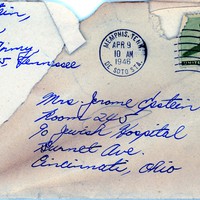 tein
Army
5 Tennessee
MEMPHIS, TENN.
APR 9
10 AM
1946
DE SOTO STA.
Mrs. Jerome Epstein
Room 245
% Jewish Hospital
Burnet Ave.
Cincinnati, Ohio